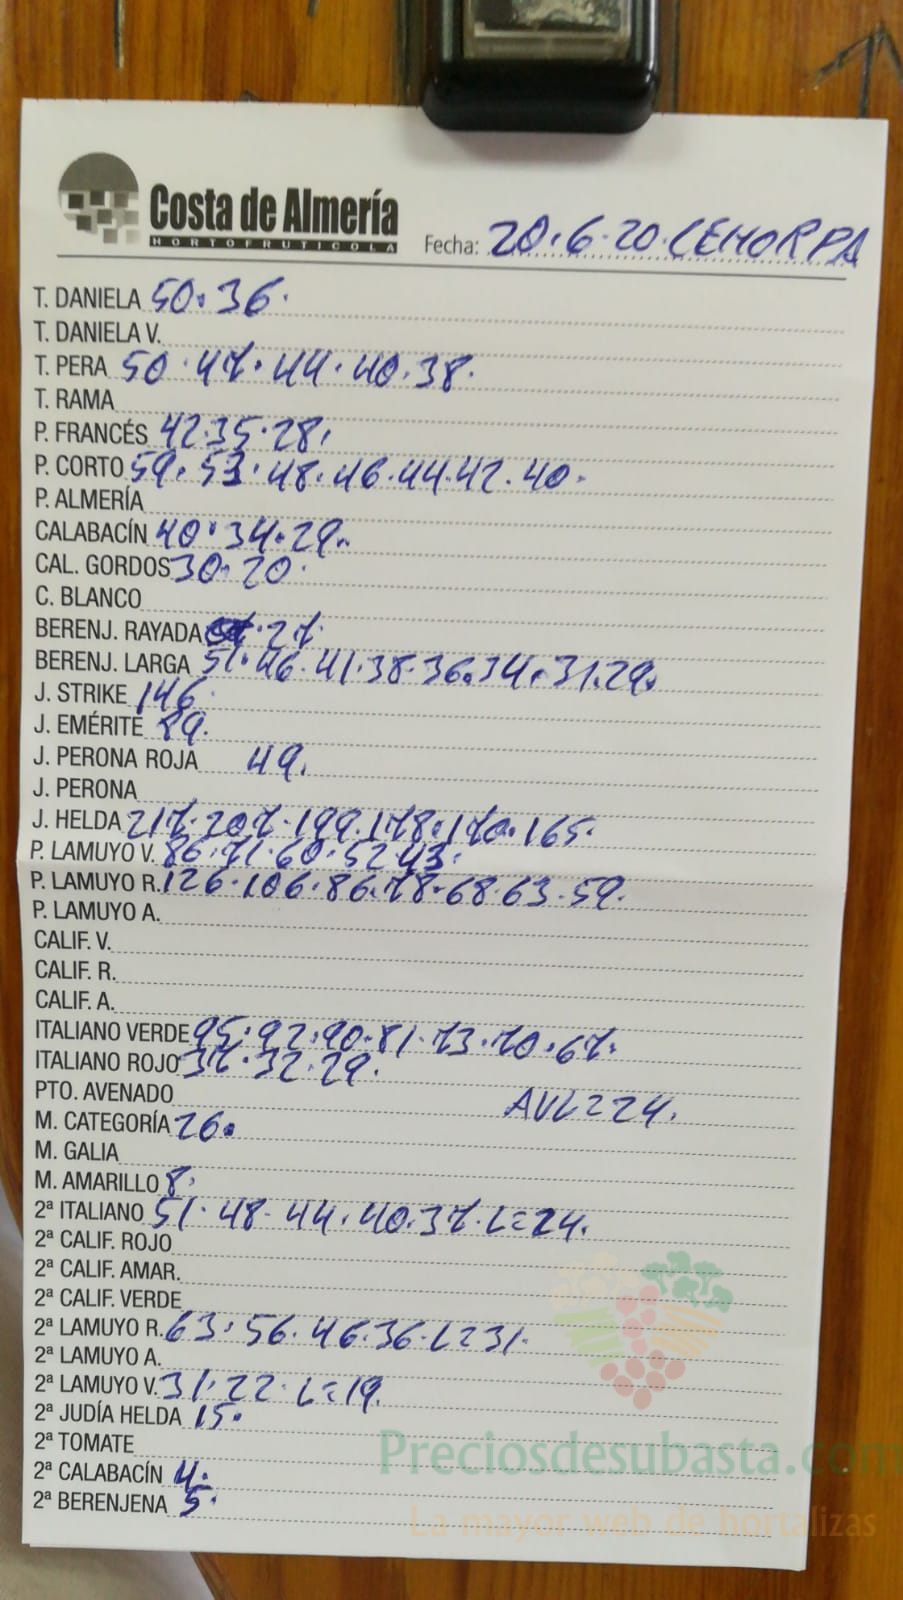 Costa de Almería
HORTOFRUTICOLA
Fecha: 20.6.20.CEHORPA
T. DANIELA 50.36.
T. DANIELA V.
T. PERA 50.47.44.40.38.
T. RAMA
P. FRANCÉS 42.35.28.
P. CORTO 59.53.48.46.44.42.40.
P. ALMERÍA
CALABACÍN 40.34.29.
CAL. GORDOS 30.20.
C. BLANCO
BERENJ. RAYADA .27.
BERENJ. LARGA 51.46.41.38.36.34.31.29.
J. STRIKE 146.
J. EMÉRITE 89.
J. PERONA ROJA 49.
J. PERONA
J. HELDA 217.207.199.178.170.165.
P. LAMUYO V. 86.71.60.52.43.
P. LAMUYO R. 126.106.86.78.68.63.59.
P. LAMUYO A.
CALIF. V.
CALIF. R.
CALIF. A.
ITALIANO VERDE 95.92.90.81.73.70.67.
ITALIANO ROJO 37.32.29.
PTO. AVENADO AVL=24.
M. CATEGORÍA 26.
M. GALIA
M. AMARILLO 8.
2ª ITALIANO 51.48.44.40.37.L=24.
2ª CALIF. ROJO
2ª CALIF. AMAR.
2ª CALIF. VERDE
2ª LAMUYO R. 63.56.46.36.L=31.
2ª LAMUYO A.
2ª LAMUYO V. 31.22.L=19.
2ª JUDÍA HELDA 15.
2ª TOMATE
2ª CALABACÍN 4.
2ª BERENJENA 5.
Preciosdesubasta.com
La mayor web de hortalizas